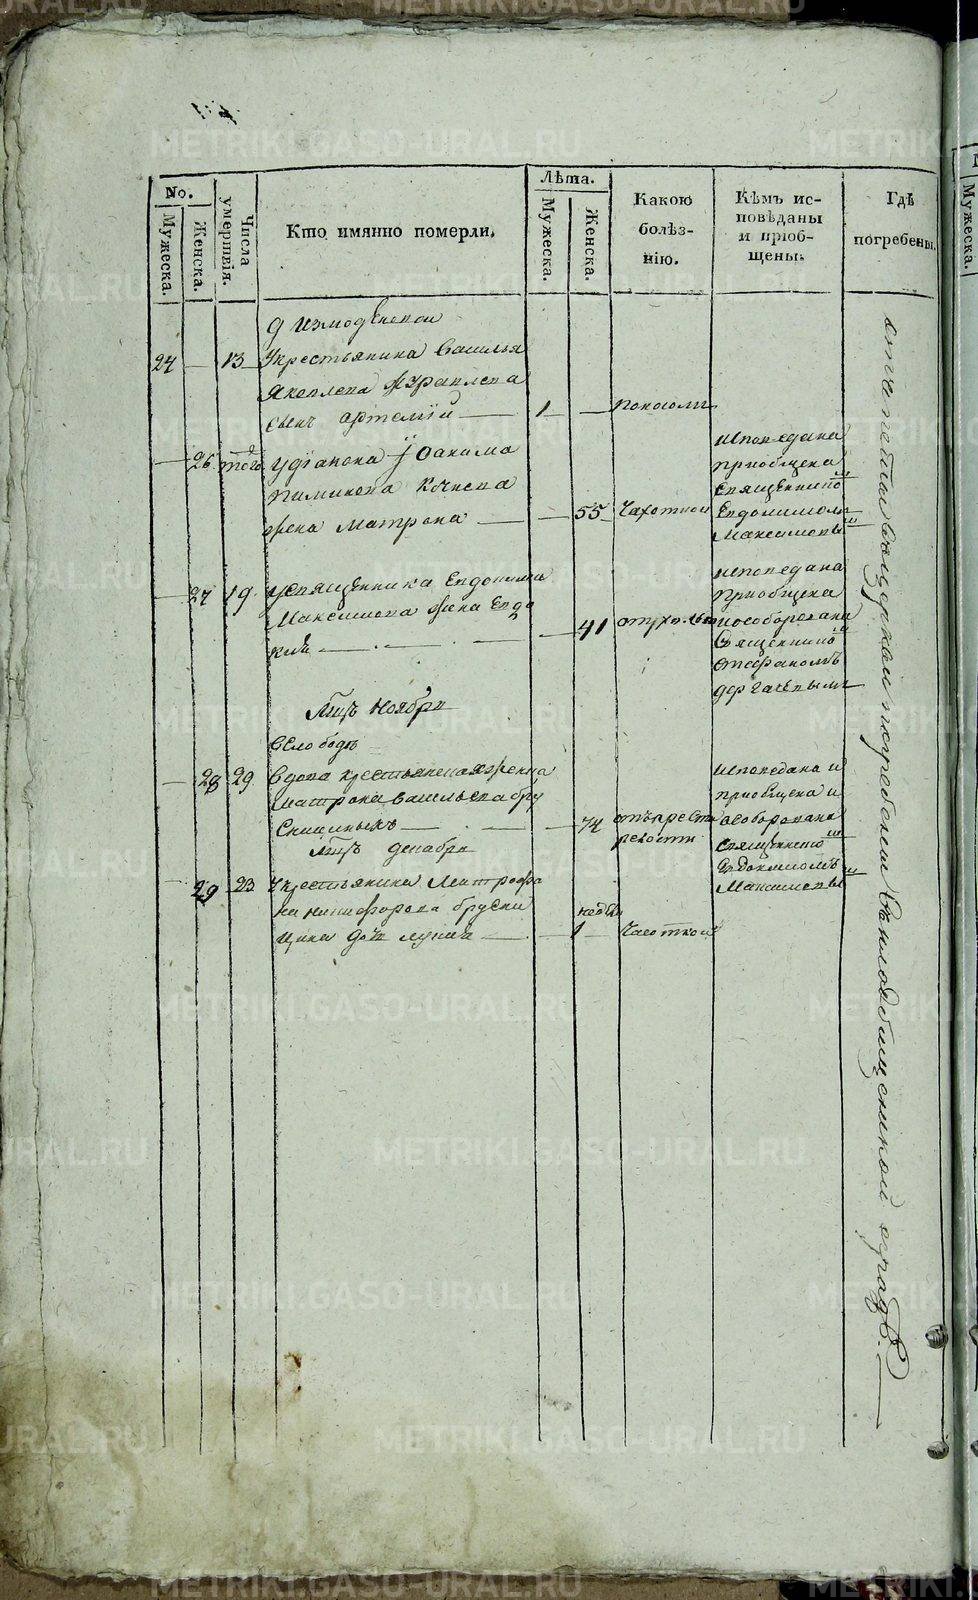 METRIKI.GASO-URAL.RU
No.
Мужеска.
Женска.
Числа умершихъ.
Кто имянно померли.
Лѣта.
Мужеска.
Женска.
Какою
болѣз-
нію.
Кѣмъ ис-
повѣданы
и пріоб-
щены.
Гдѣ
погребены.
24 — 13 Укрестьянина Василья
Яковлева Журавлева
сынъ Артемїй — 1 — поносомъ
— 26 того удїакона Їоакима
Пименова Кочнева
жена Матрона — — 55 Чахоткой
исповедана
приобщена
священнико
Евдокимомъ
Максимовы
— 27 19 Усвященника Евдокима
Максимова жена Евдо
кия — — 41
исповедана
приобщена
особорована
Священнико
Стефаномъ
Дергачевымъ
Мцъ Ноября
вслободе
— 28 29 вдова крестьянская женка
Матрона Васильева Бру
сницыныхъ — — 74 отъ преста
релости
исповедана и
приобщена и
особорована
священнико
Евдокимомъ
Максимовы
Мцъ декабря
— 29 23 Укрестьянина Митрофа
на Никифорова Брусни
цына дочь — — недели
1 Чесоткой
погребены
оградѣ.